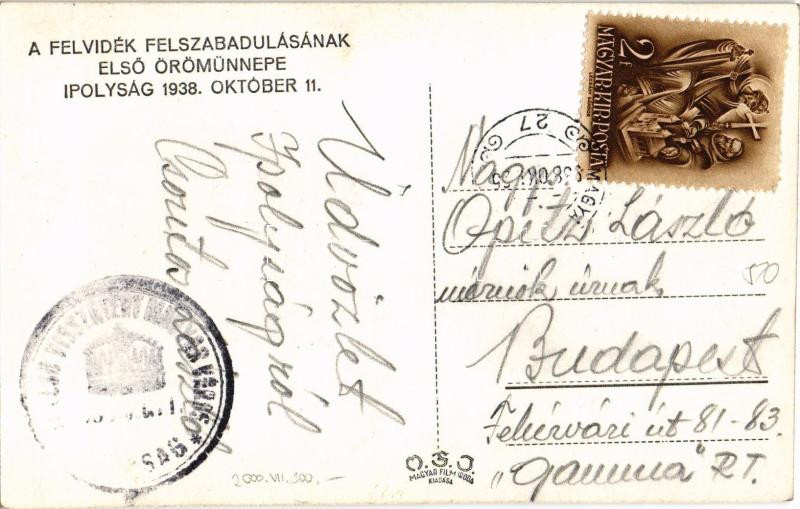 A FELVIDÉK FELSZABADULÁSÁNAK
ELSŐ ÖRÖMÜNNEPE
IPOLYSÁG 1938. OKTÓBER 11.
Üdvözlet
Ipolyságról
László
2f
MAGYAR KIR. POSTA
27
Nagys.
Opitz László
mérnök úrnak
Budapest
Fehérvári út 81-83.
"Gamma" R.T.
50
VISSZATÉRT MAGYAR VÁROS
SÁG
MAGYAR FILM IRODA
KIADÁSA
2000.VII.300,-